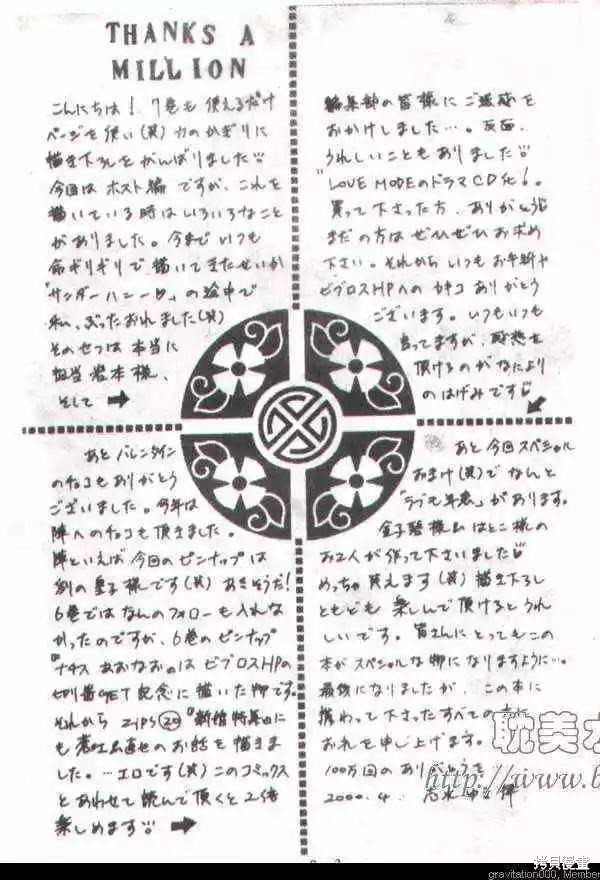 THANKS A
MILLION
こんにちは! 7巻も使えるだけ
ページを使い(笑)力のかぎりに
描き下ろしをがんばりました
今回はホスト編ですが、これを
描いている時はいろいろなこと
がありました。今まで いつも
命ぎりぎりで描いてきたせいか
「サンダーハニー」の途中で
私、ぶったおれました(笑)
そのせつは本当に
担当岩本様、
そして
編集部の皆様にご迷惑を
おかけしました…。反面、
うれしいこともありました
「LOVE MODEのドラマCD化!
買って下さった方、ありがとう
まだの方はぜひぜひお求め
下さい。それから いつもお手紙や
ビブロスHPへの カキコ ありがとう
ございます。いつもいつも
言ってますが、感想を
頂けるのがなにより
のはげみです
あと バレンタイン
のチョコもありがとう
ございました。今年は
陣へのチョコも頂きました。
陣といえば 今回のピンナップは
例の 様です(笑) あきそうだ!
6巻ではなんのフォローも入れな
かったのですが、6巻のピンナップ
「ナギス あおなお」はビブロスHPの
切番GET記念に描いた物です。
それから ZIPS ⑳ 『新婚特集』に
も 直也のお話を描きま
した。…エロです(笑)このコミックス
とあわせて読んで頂くと2倍
楽しめます
あと今回スペシャル
おまけ(笑)でなんと
「ラブも年表」があります。
金子 様 はとこ様の
お2人が作って下さいました
めっちゃ笑えます(笑)描き下ろし
ともども 楽しんで頂けるとうれ
しいです。皆さんにとってもこの
本がスペシャルな物になりますように…。
最後になりましたが、この本に
携わって下さったすべての
お礼を申し上げます。
100万回のありがとうを
2000.4.
耽美
http://www.b
拷貝漫畫
gravitation000, Member